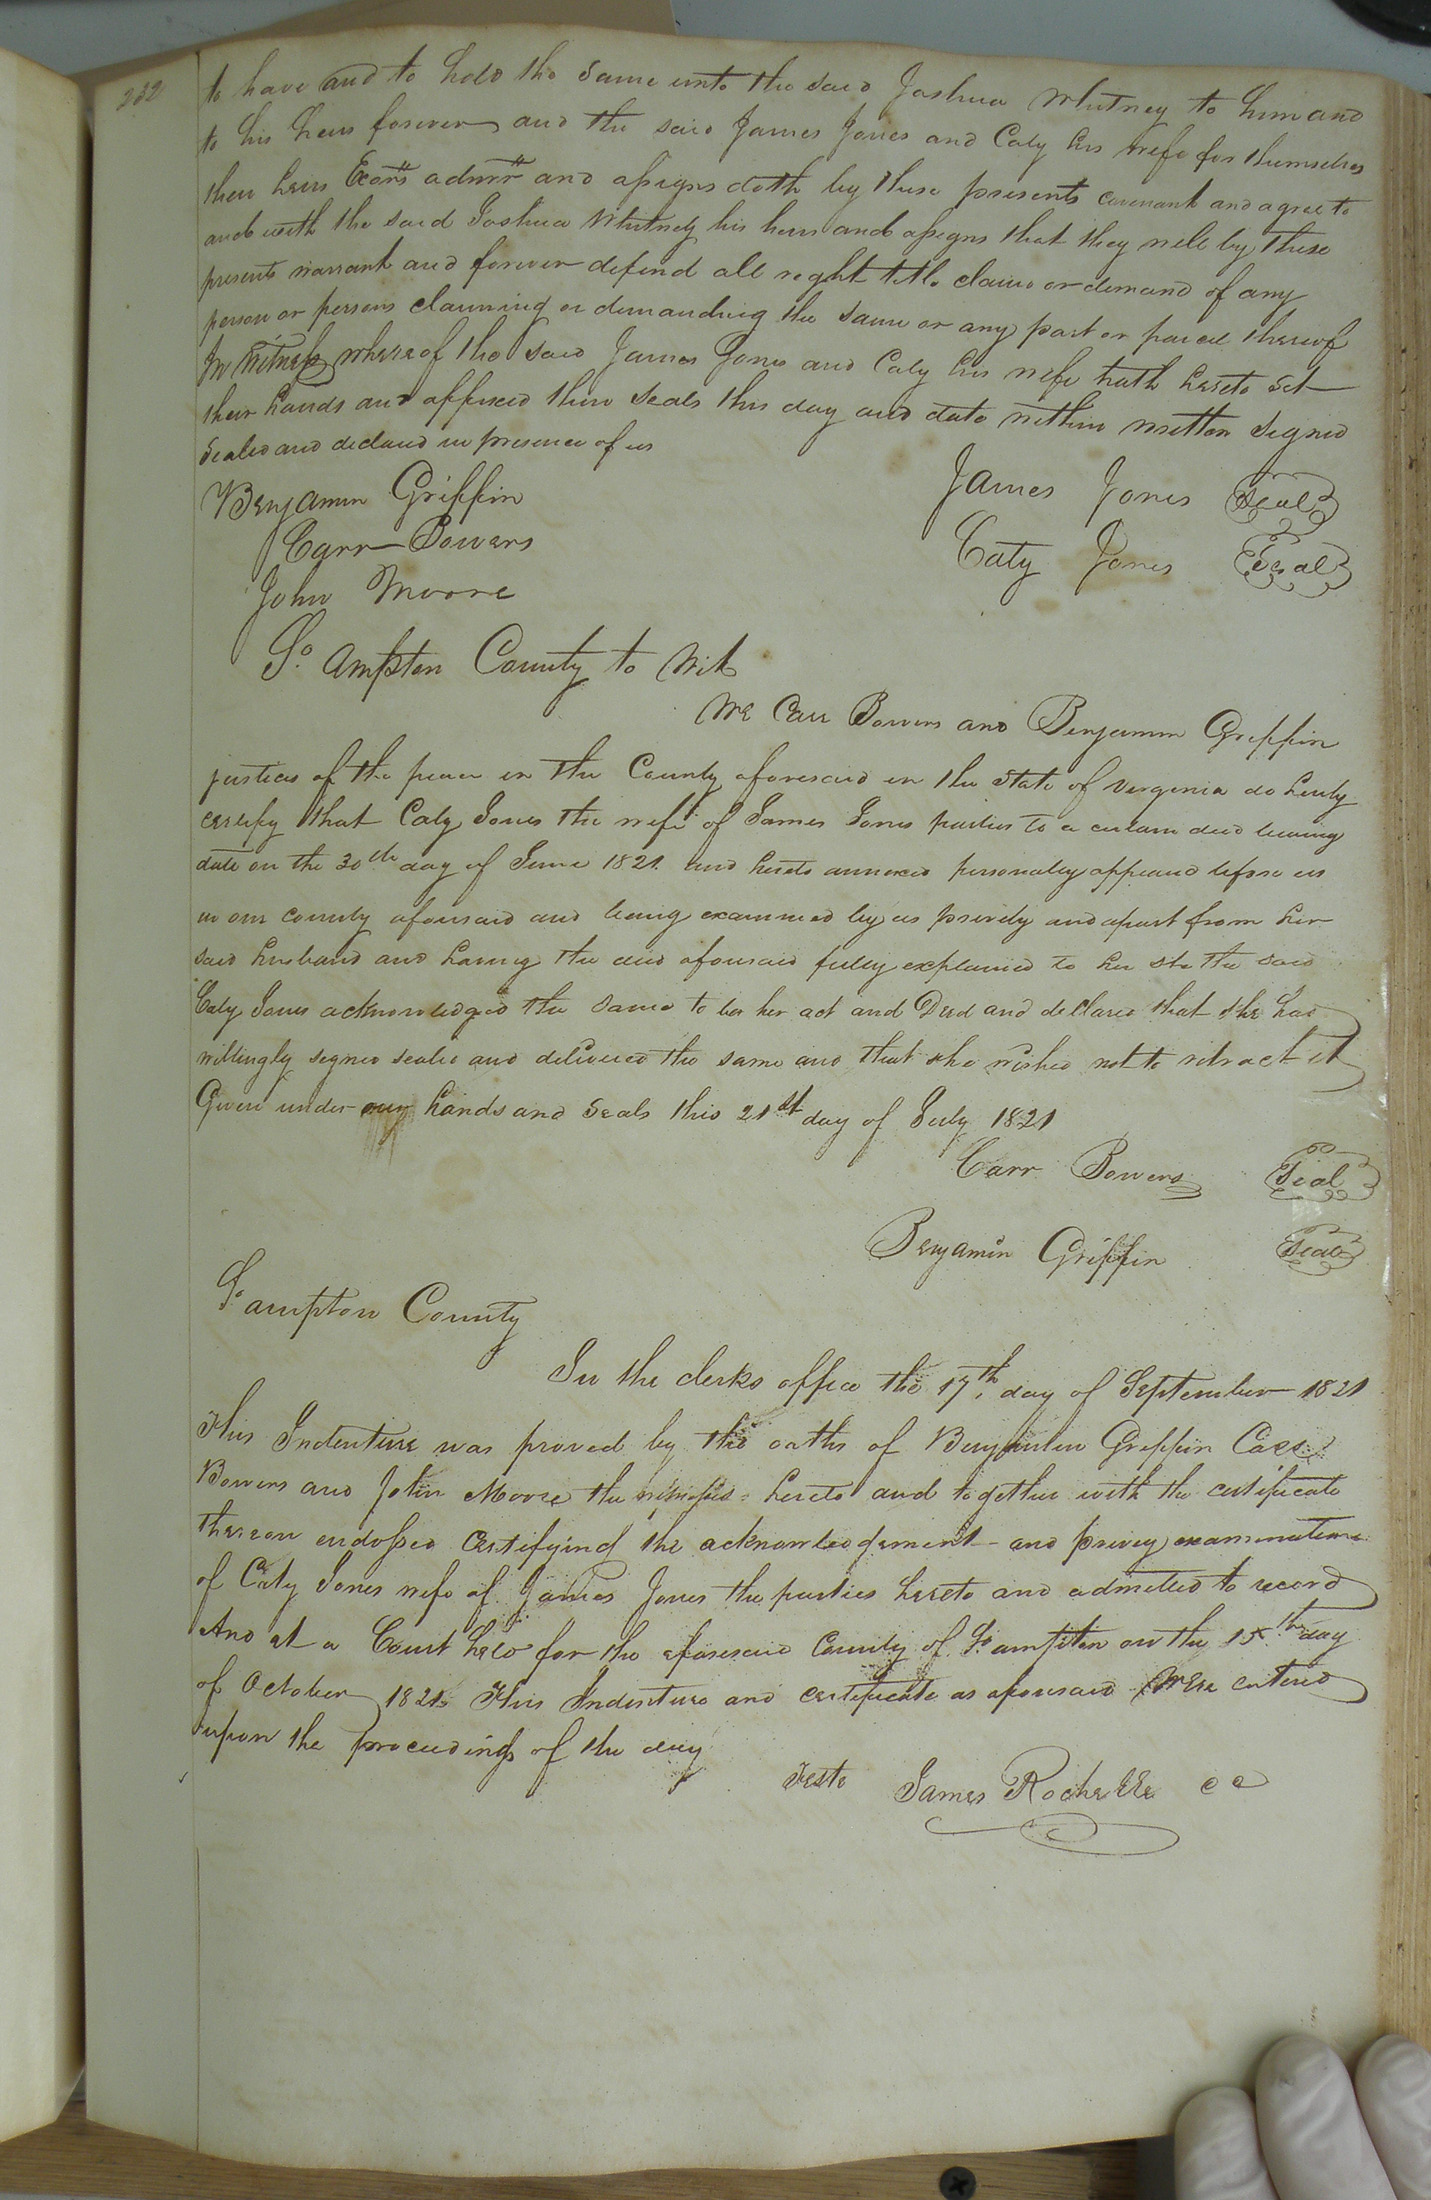 232
to have and to hold the same unto the said Joshua Whitney to him and
to his heirs forever and the said James Jones and Caty his wife for themselves
their heirs Exors admrs and assigns doth by these presents covenant and agree to
and with the said Joshua Whitney his heirs and assigns that they will by these
presents warrant and forever defend all right title claim or demand of any
person or persons claiming or demanding the same or any part or parcel thereof
In Witness whereof the said James Jones and Caty his wife hath hereto set
their hands and affixed their seals this day and date within written Signed
Sealed and declared in presence of us
Benjamin Griffin
James Jones Seal
Carr Bowers
Caty Jones Seal
John Moore
So. ampton County to Wit
We Carr Bowers and Benjamin Griffin
justices of the peace in the County aforesaid in the State of Virginia do hereby
certify that Caty Jones the wife of James Jones parties to a certain deed bearing
date on the 30th day of June 1821 and hereto annexed personally appeared before us
in our county aforesaid and being examined by us privily and apart from her
said husband and having the deed aforesaid fully explained to her she the said
Caty Jones acknowledged the same to be her act and Deed and declared that she had
willingly signed sealed and delivered the same and that she wished not to retract it
Given under our hands and Seals this 21st day of July 1821
Carr Bowers Seal
Benjamin Griffin Seal
So. ampton County
In the clerks office the 17th day of September 1821
This Indenture was proved by the oaths of Benjamin Griffin Carr
Bowers and John Moore the witnesses hereto and together with the certificate
thereon endossed Certifying the acknowledgement and privey examination
of Caty Jones wife of James Jones the parties hereto and admitted to record
And at a Court held for the aforesaid County of So. ampton on the 15th day
of October 1821 This Indenture and certificate as aforesaid Were entered
upon the proceedings of the day
Teste James Rochelle CC